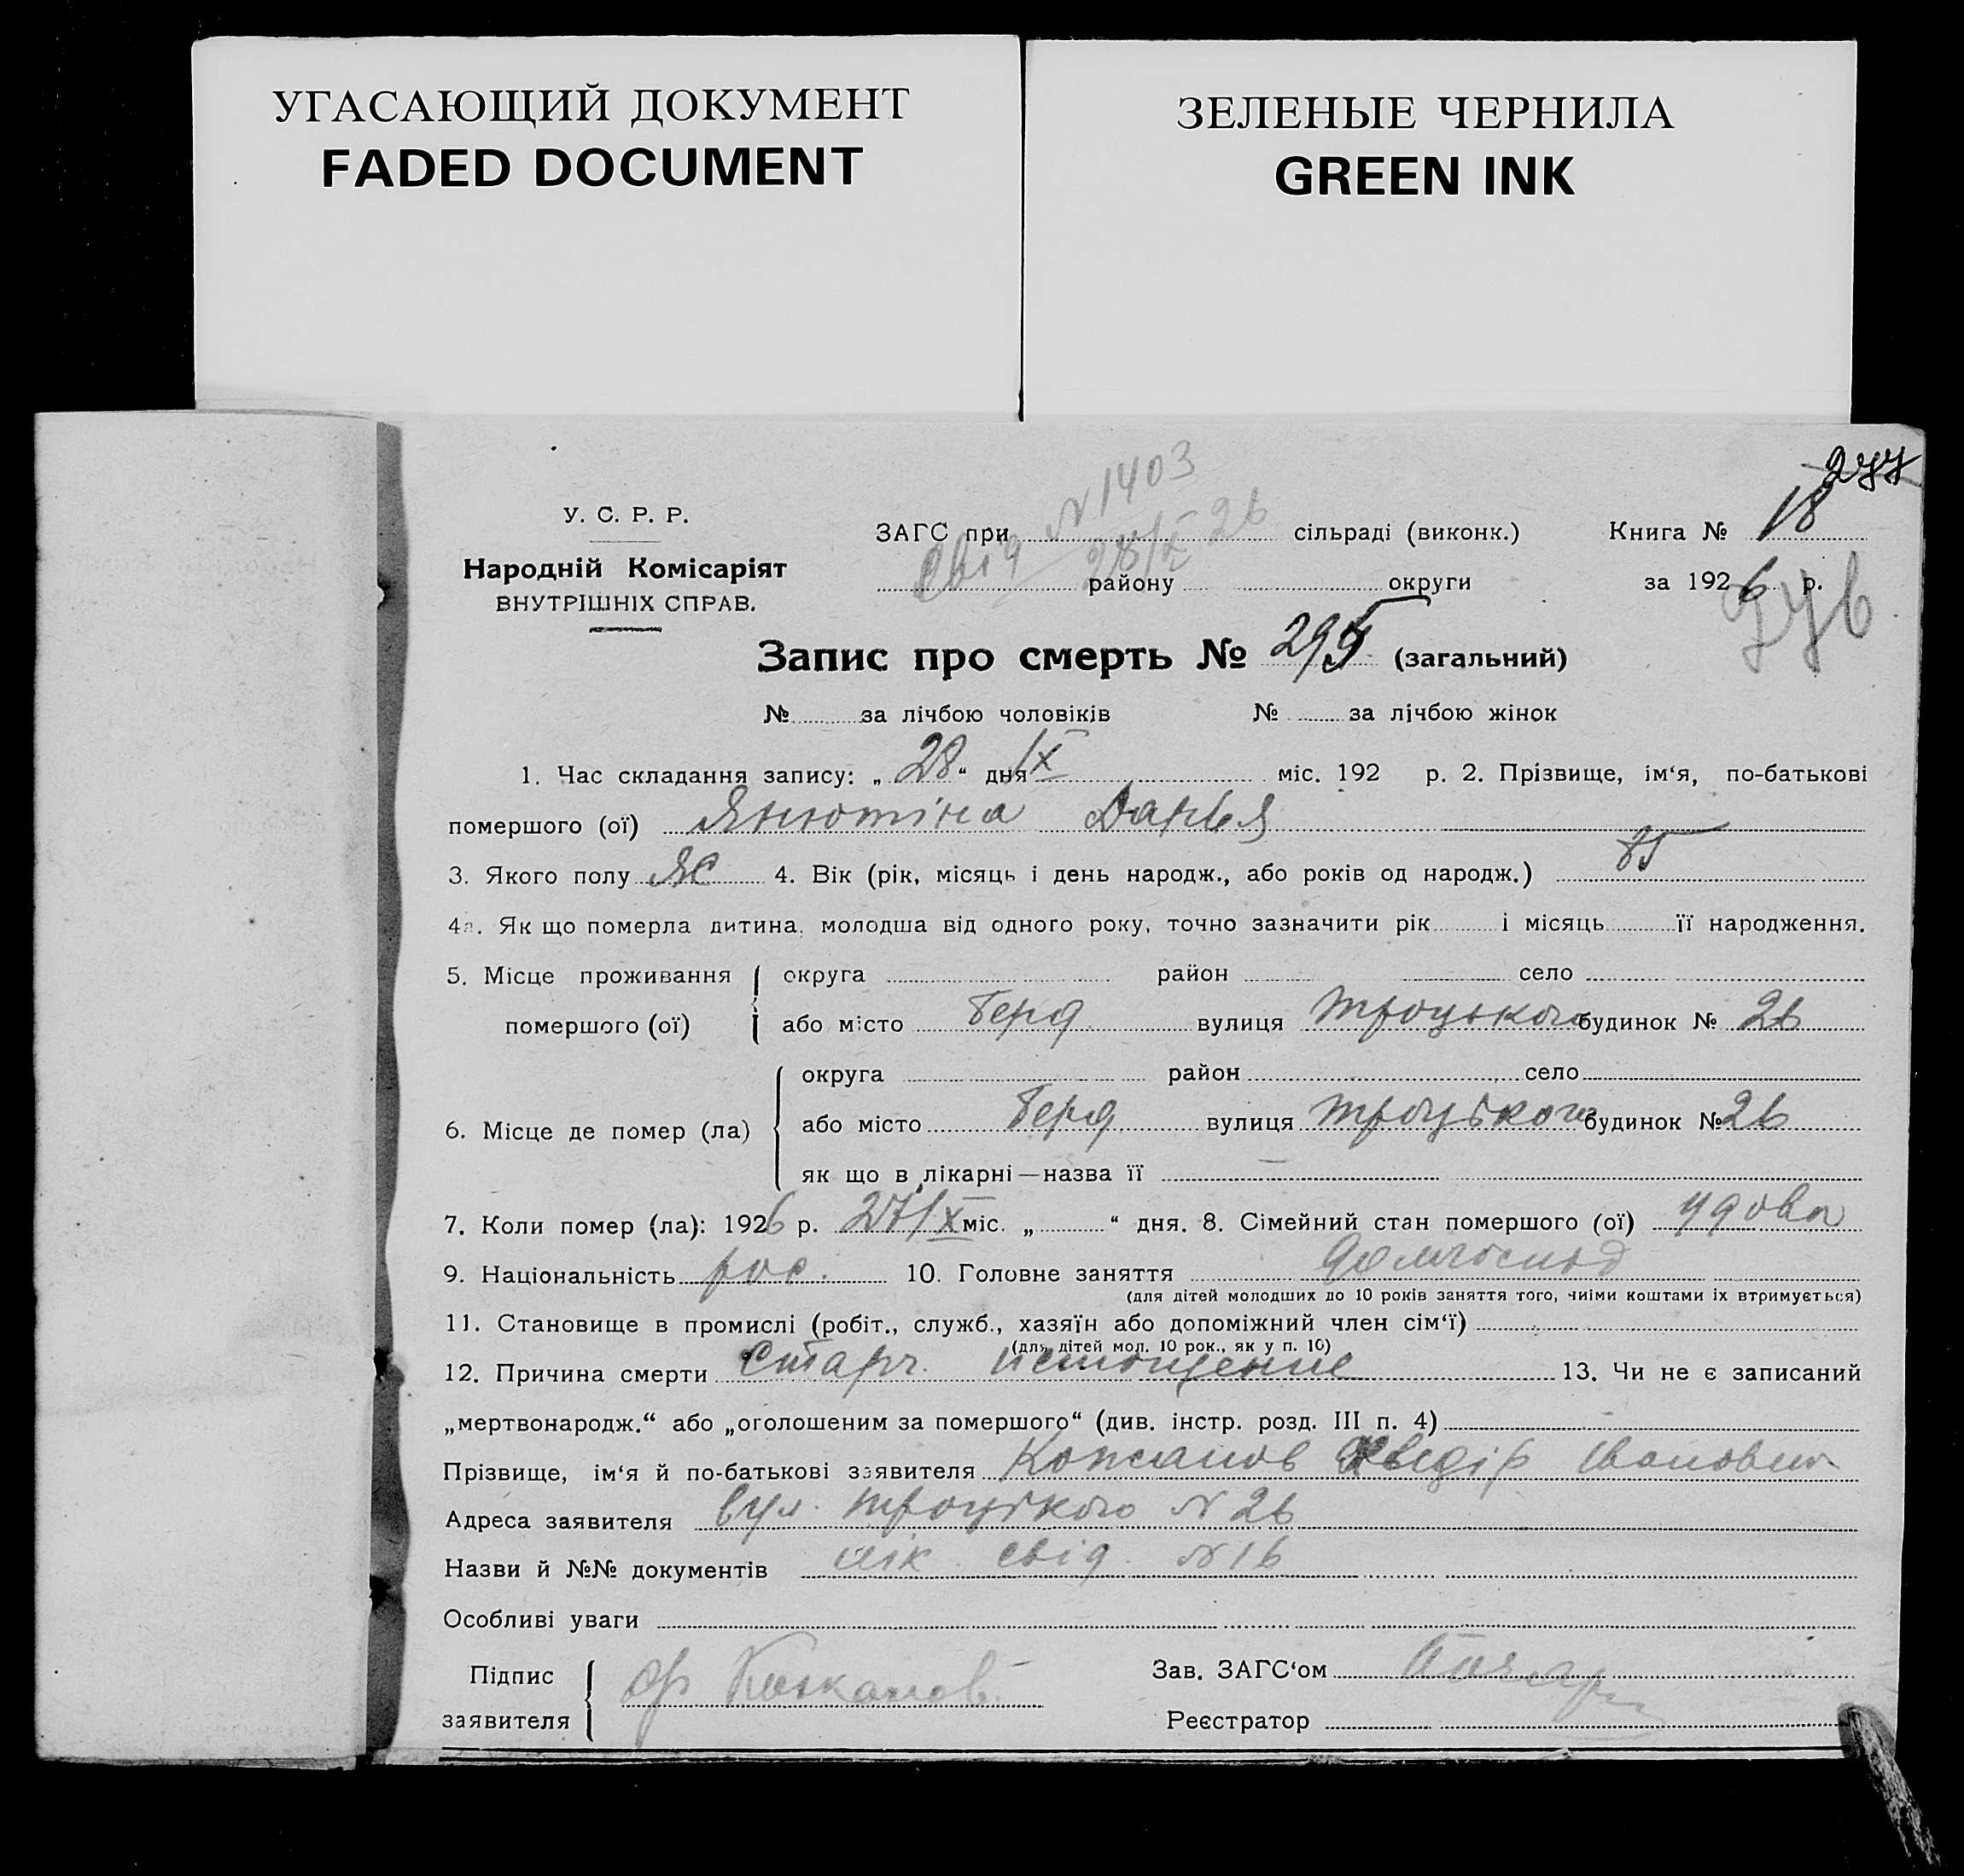 УГАСАЮЩИЙ ДОКУМЕНТ
FADED DOCUMENT
ЗЕЛЕНЫЕ ЧЕРНИЛА
GREEN INK
277
У. С. Р. Р.
Народній Комісаріят
ВНУТРІШНІХ СПРАВ.
N 1403
Свід 28/IX 26
ЗАГС при сільраді (виконк.)
району округи
Книга № 18
за 1926 р.
Запис про смерть № 295 (загальний)
№ за лічбою чоловіків № за лічбою жінок
1. Час складання запису: „ 28 “ дня IX міс. 192 р. 2. Прізвище, ім‘я, по-батькові
помершого (ої) Янютіна Дарья
3. Якого полу ж 4. Вік (рік, місяць і день народж., або років од народж.) 85
4а. Як що померла дитина, молодша від одного року, точно зазначити рік і місяць її народження.
5. Місце проживання округа район село
помершого (ої) або місто Берд вулиця Троцького будинок № 26
округа район село
6. Місце де помер (ла) або місто Берд вулиця Троцького будинок № 26
як що в лікарні—назва її —
7. Коли помер (ла): 1926 р. 27/IX міс. „ “ дня. 8. Сімейний стан помершого (ої) удова
9. Національність рос. 10. Головне заняття домгоспод
(для дітей молодших до 10 років заняття того, чиїми коштами їх втримується)
11. Становище в промислі (робіт., служб., хазяїн або допоміжний член сім‘ї)
(для дітей мол. 10 рок., як у п. 10)
12. Причина смерти Старч. истощение 13. Чи не є записаний
„мертвонародж.“ або „оголошеним за помершого“ (див. інстр. розд. III п. 4)
Прізвище, ім‘я й по-батькові заявителя Кожанов Хведір Іванович
Адреса заявителя вул. Троцького N 26
Назви й №№ документів лік. свід. N 16
Особливі уваги
Підпис
заявителя Ф Кожанов
Зав. ЗАГС‘ом
Реєстратор